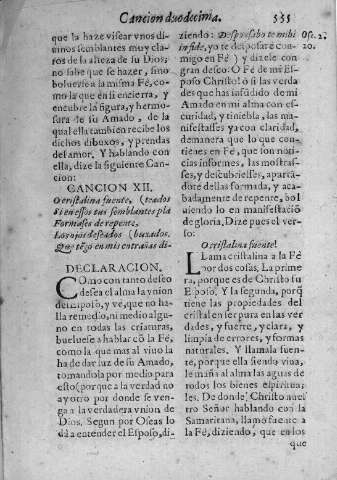 Cancion duodecima. 535
que la haze viſear vnos di-
uinos ſemblantes muy cla-
ros de la alteza de ſu Dios;
no ſabe que ſe hazer, ſino
boluerſe a la miſma Fè, co-
mo la que en ſi encierra, y
encubre la figura, y hermo-
ſura de ſu Amado, de la
qual ella tambien recibe los
dichos dibuxos, y prendas
del amor. Y hablando con
ella, dize la ſiguiente Can-
cion:
CANCION XII.
O criſtalina fuente, (teados
Si en eſſos tus ſemblantes pla
Formaſes de repente,
Los ojos deſeados (buxados.
Que tẽgo en mis entrañas di-
DECLARACION.
COmo con tanto deſeo
deſea el alma la vnion
del Eſpoſo, y vè, que no ha-
lla remedio, ni medio algu-
no en todas las criaturas,
buelueſe a hablar cõ la Fè,
como la que mas al viuo la
ha de dar luz de ſu Amado,
tomandola por medio para
eſto; porque a la verdad no
ay otro por donde ſe ven-
ga a la verdadera vnion de
Dios. Segun por Oſeas lo
dà a entender el Eſpoſo, di-
ziendo: Deſponſabo te mihi
in fide, yo te deſpoſarè con-
migo en Fè) y dizele con
gran deſeo: O Fè de mi Eſ-
poſo Chriſto! ò ſi las verda-
des que has infudido de mi
Amado en mi alma con eſ-
curidad, y tiniebla, las ma-
nifeſtaſſes ya con claridad,
demanera que lo que con-
tienes en Fè, que ſon noti-
cias informes, las moſtraſ-
ſes, y deſcubrieſſes, apartã-
dote dellas formada, y aca-
badamente de repente, bol
uiendo lo en manifeſtaciõ
de gloria. Dize pues el ver-
ſo:
O criſtalina fuente!
LLama criſtalina a la Fè
por dos coſas. La prime
ra, porque es de Chriſto ſu
Eſpoſo. Y la ſegunda, porq̃
tiene las propiedades del
criſtal en ſer pura en las ver
dades, y fuerte, y clara, y
limpia de errores, y formas
naturales. Y llamala fuen-
te, porque ella ſiendo viua,
le manã al alma las aguas de
todos los bienes eſpiritua-
les. De donde Chriſto nueſ
tro Señor hablando con la
Samaritana, llamò fuente a
la Fè, diziendo, que en los
que
Oſe. 2.
20.